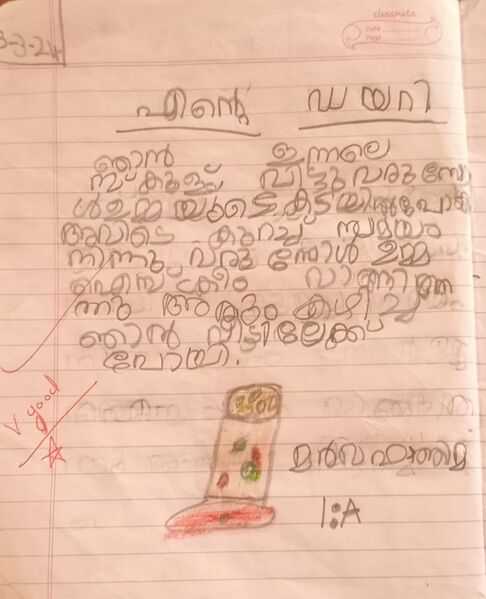 classmate
Date
Page
3-3-24
എന്റെ ഡയറി
ഞാൻ ഇന്നലെ
സ്കൂള് വിട്ടു വരുമ്പോ
ൾ ഉമ്മയുടെ കടയിൽ പോയി
അവിടെ കുറച്ച് സമയം
നിന്നു വരുമ്പോൾ ഉമ്മ
ഐസ്ക്രീം വാങ്ങിത്ത
ന്നു അതും കഴിച്ച്
ഞാൻ വീട്ടിലേക്ക്
പോയി.
V good
ഫാത്തിമ
1:A